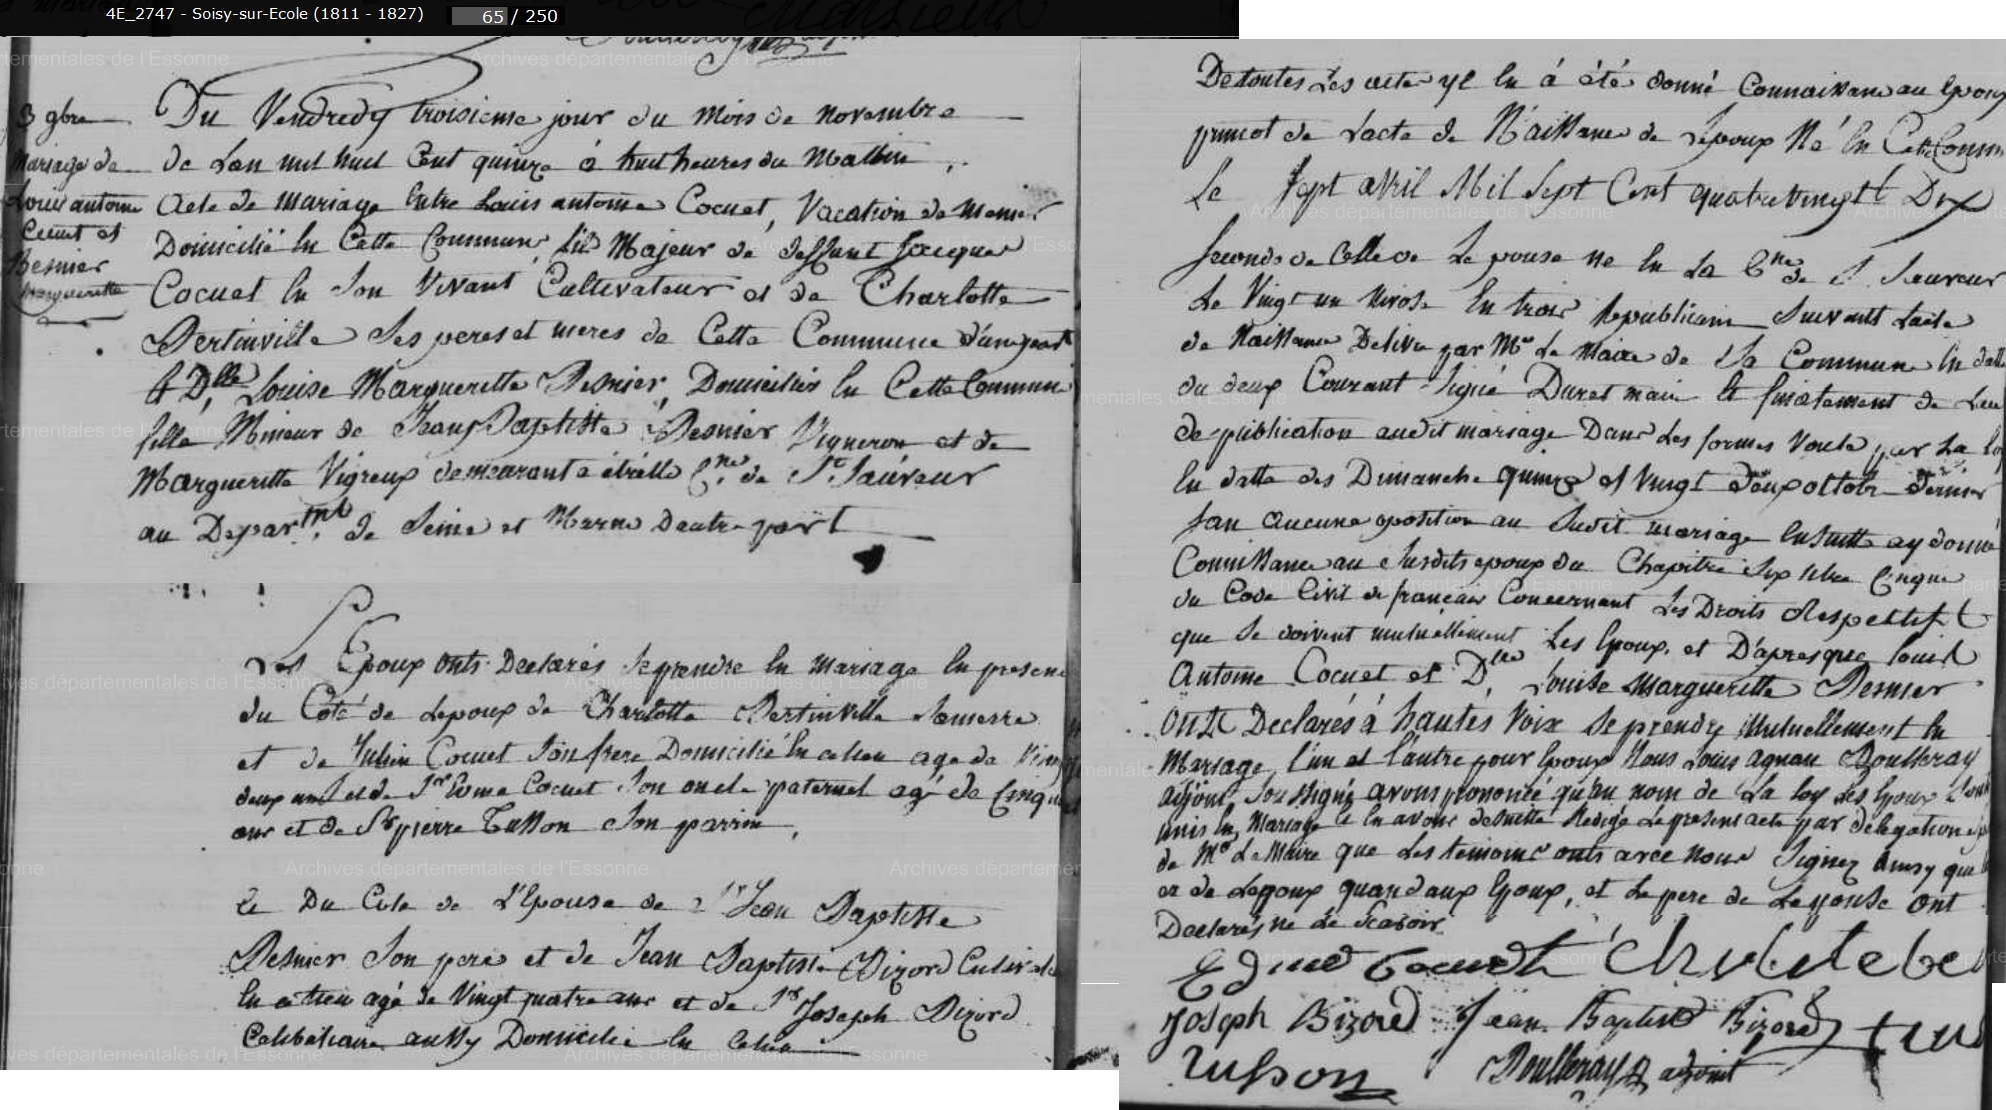 4E_2747 - Soisy-sur-Ecole (1811 - 1827) 65 / 250
3 9bre
Mariage de
Louis antoine
Cocuet et
Besnier
Margueritte
Du Vendredy troisieme jour du mois de novembre
de Lan mil huit Cent quinze à huit heures du Mattin
Acte de mariage Entre Louis antoine Cocuet, Vacation de
Domicilié En Cette Commune, fils Majeur de deffunt Jacques
Cocuet En Son Vivant Cultivateur et de Charlotte
Bertinville Ses peres et meres de Cette Commune d'une part
Et Dlle Louise Margueritte Besnier, Domiciliés En Cette Commune
fille Mineur de Jean Baptiste Besnier Vigneron et de
Margueritte Vigreux demeurant à Cne de St Sauveur
au Depart.mt de Seine et Marne Deautre part
Les Epoux onts Declarés Se prendre En mariage En presence
du Coté de Lepoux de Charlotte Bertinville Sa merre
et de Julien Cocuet Son frere Domicilié En ce lieu age de Vingt
deux ans et de Sr Edme Cocuet Son oncle paternel agé de Cinquante
ans et de Sr pierre Tusson Son parrin,
Et Du Cote de L'Epouse de Sr Jean Baptiste
Besnier Son pere et de Jean Baptiste Bizord
En ce lieu agé de Vingt quatre ans et de Sr Joseph Bizord
Celibataire aussy Domicilié En Celieu
De toutes Les actes yl En á été donné Connaissance au Epoux
primot de Lacte de Naissance de Lepoux Né En Cette Commune
Le Sept avril Mil Sept Cent quatre vingt Dix
Seconde de Celle de Le pouse ne En La Cne de St Sauveur
Le Vingt un Nivose En trois Republicain Suivant Lacte
de Naissance Delivre par Mr Le Maire de Sa Commune En datte
du deux Courant Signé Duret maire Et de
de publication audit mariage Dans Les formes Voulu par La loy
En datte des Dimanche quinze et Vingt deux octobre dernier
San aucune oposition au Sudit mariage Ensuitte ay donné
Connissance au Susdits epoux du Chapitre Six titre Cinque
du Code Civil de français Concernant Les Droits Respectif
que Se doivent mutuellement Les Epoux. et D'apres que Louis
Antoine Cocuet et Dlle Louise Margueritte Besnier
Onts Declarés à hautes Voix Se prendre Mutuellement En
Mariage, l'un et l'autre pour Epoux Nous Louis agnan Doulleray
adjoint Soussigné avons prononcée qu'au nom de La loy Les Epoux Sont
unis En Mariage Et En avons desuitte Redigé Le present acte par délegation
de Mr Le Maire que Les temoins onts avec nous Signez Ainsy que
de Lepoux quand aux Epoux, et Le pere de Lepouse ont
Declarés ne Le Scavoir
Edme Cocuet
Joseph Bizord Jean Baptiste Bizord
tusson Doulleray adjoint
Archives départementales de l'Essonne